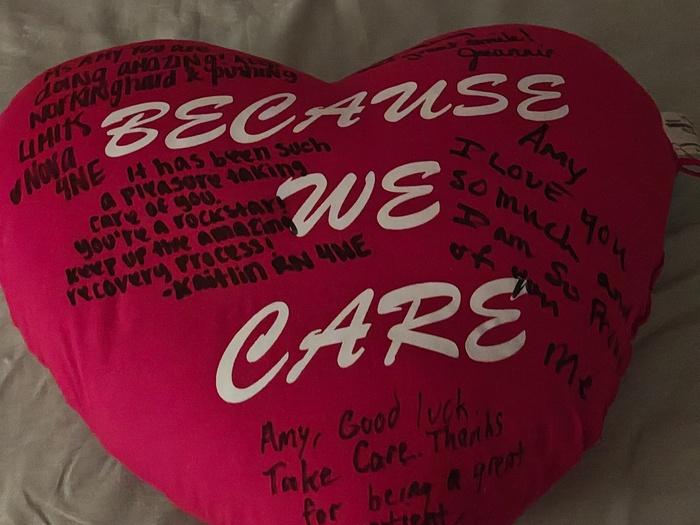 Ms Amy You are
doing amazing! Keep
working hard & pushing
LIMITS
Nova
4NE
great smile!
Jeannie
BECAUSE
WE
CARE
It has been such
a pleasure taking
care of you.
you're a rockstar!
keep up the amazing
recovery process!
-Kaitlin RN 4NE
Amy
I LOVE you
so much and
I am so
of you
Me
Amy, Good luck.
Take Care. Thanks
for being a great
patient.